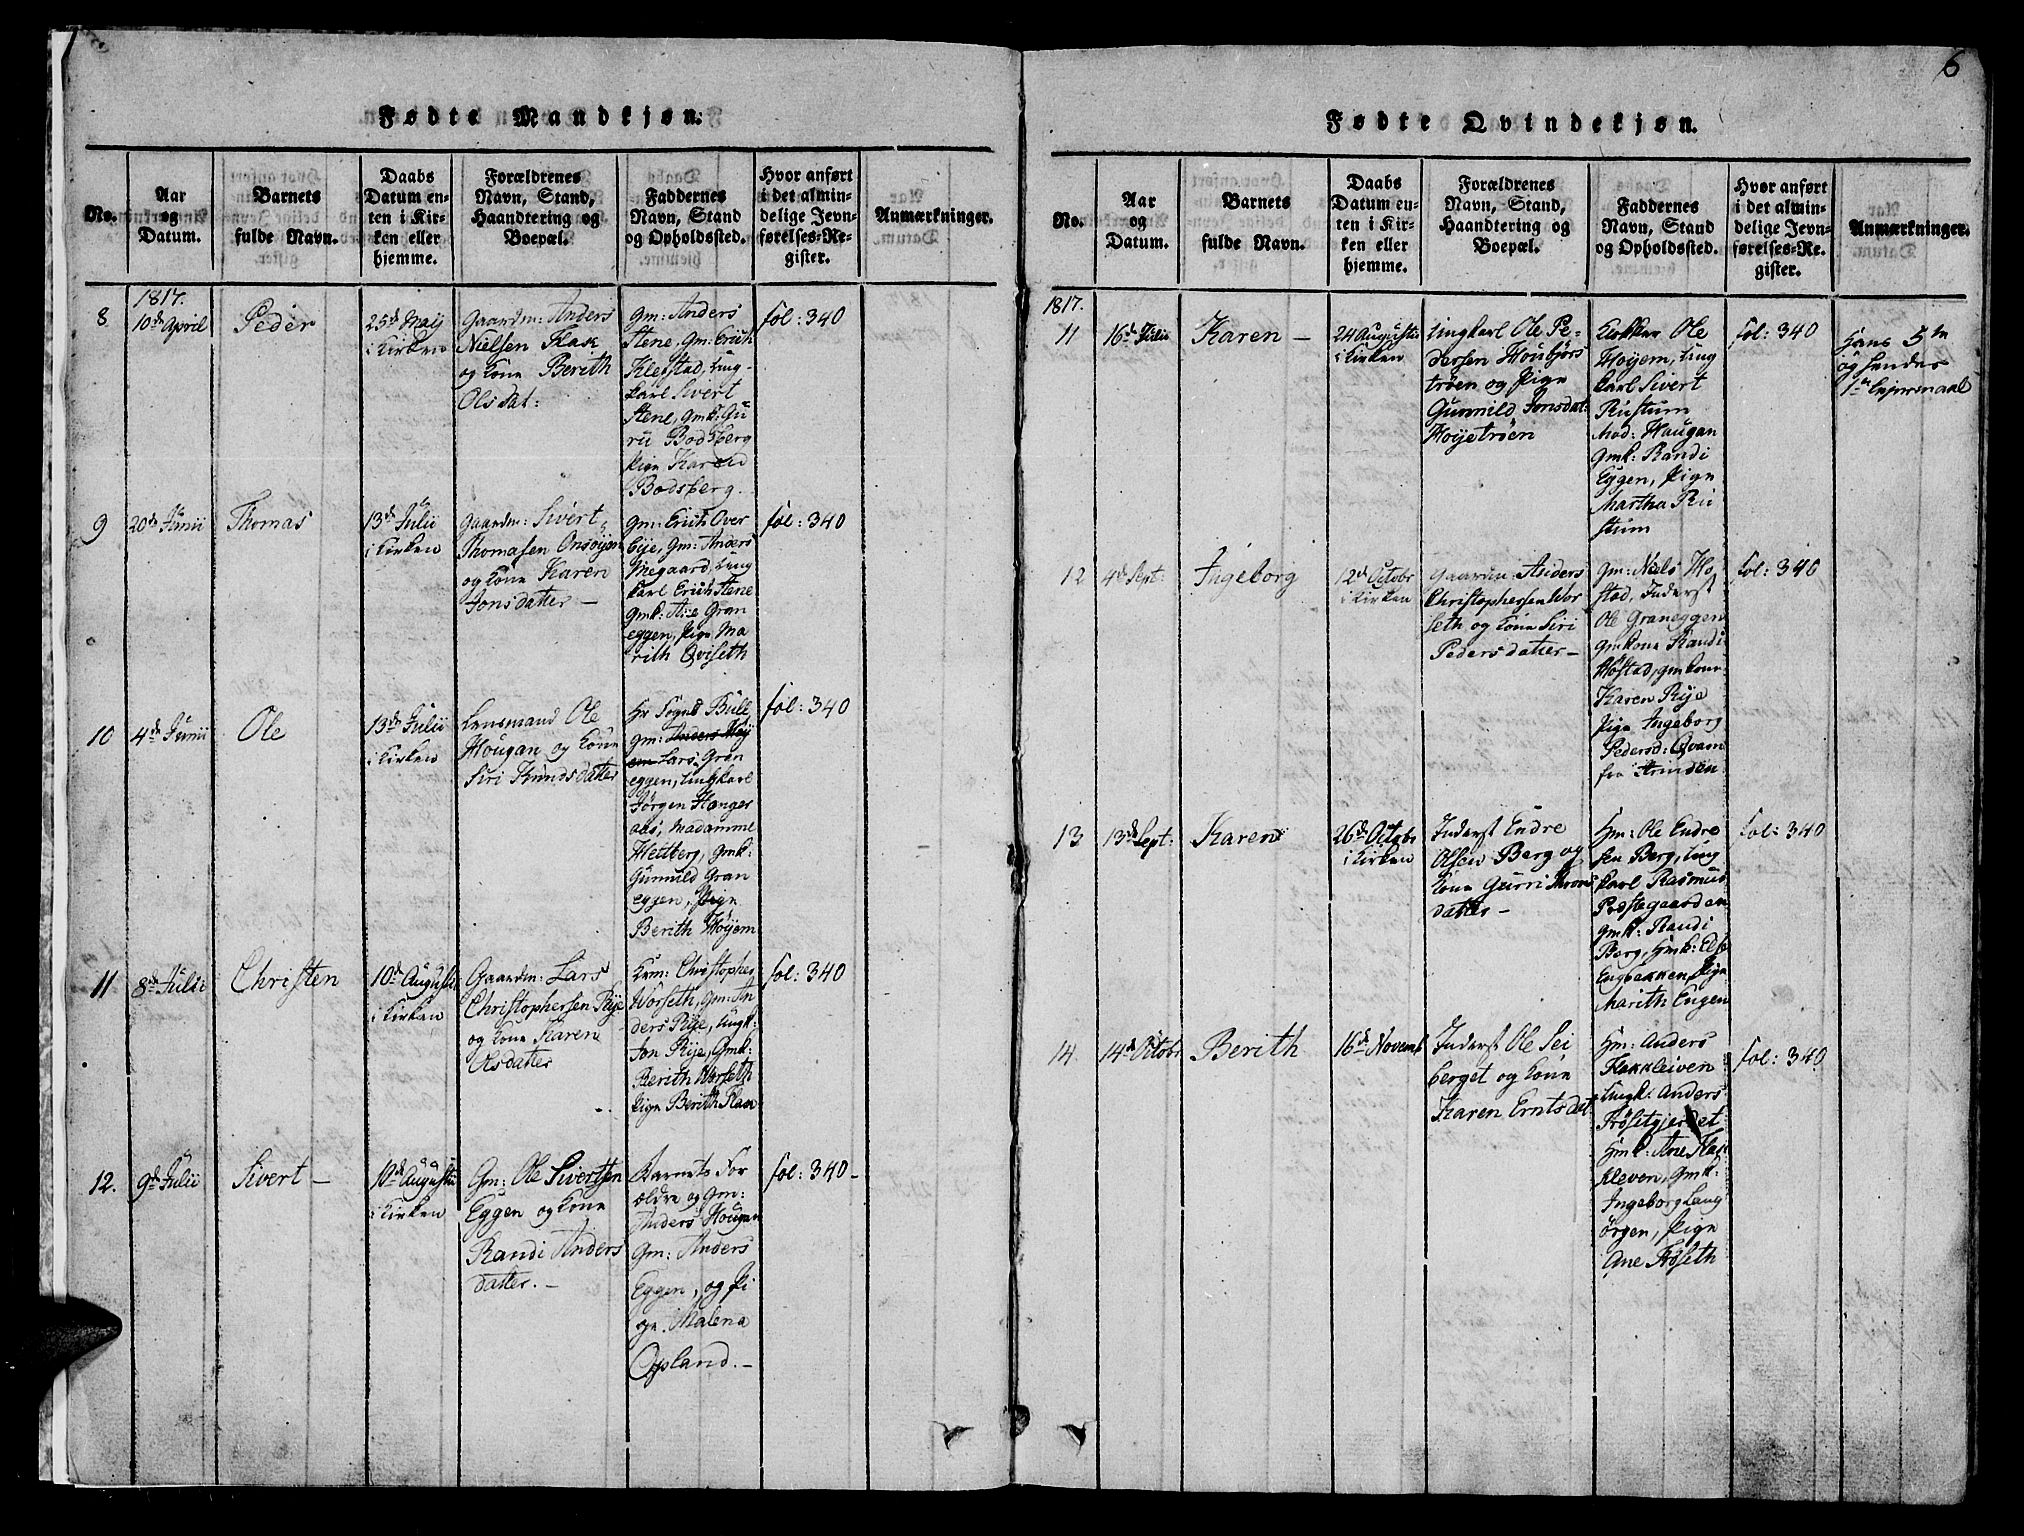 6
Fødte Mandkjøn.
No.
Aar
og
Datum.
Barnets
fulde Navn.
Daabs
Datum en-
ten i Kir-
ken eller
hjemme.
Forældrenes
Navn, Stand,
Haandtering og
Boepæl.
Faddernes
Navn, Stand
og Opholdssted.
Hvor anført
i det almin-
delige Jevn-
førelses-Re-
gister.
Anmærkninger.
1817.
8
10de April
Peder
25de Maij
i Kirken
Gaardm: Anders
Nielsen Flak
og kone Berith
Olsdat:
Gm: Anders
Stene, Gm: Erich
Klefstad, Ung-
karl Sivert
Stene, Gmk: Gu
ru Bodsberg
Pige Karen
Bodsberg.
fol: 340
9
20de Junii
Thomas
13de Julii
i Kirken
Gaardm: Sivert
Thomasen Onsøijen
og kone Karen
Jonsdatter –
Gm: Erich Over
Eije, Gm: Anders
Megaard, Ung
karl Erich Stene
Gmk: Ane Gran
eggen, Pige Ma
rith Qviseth
fol: 340
10
4de Junii
Ole
13de Julii
i Kirken
Lensmand Ole
Hougan og kone
Siri Knudsdatter
Hr Sogns Bull
Gm: Anders Høij
em Lars Gran
eggen, Ungkarl
Jørgen Hanger
aas, Madamme
Heitberg, Gmk:
Gunnild Gran
eggen, Pige
Berith Höijem
fol: 340
11
8de Julii
Christen
10de August
i Kirken
Gaardm: Lars
Christophersen Rije
og kone Karen
Olsdatter
Krm: Christopher
Worseth, Gm: An
ders Rije, Ungk:
Jon Rije, Gmk:
Berith Worseth
Pige Berith Flak
fol: 340
12.
9de Julii
Sivert –
10de Augusti
i Kirken
Gm: Ole Sivertsen
Eggen og kone
Randi Anders
datter. –
Barnets For
ældre og Gm:
Anders Hougan
Gm: Anders
Eggen, og Pi
ge Malena
Opland. –
fol: 340 –
Fødte Qvindekjøn.
No.
Aar
og
Datum.
Barnets
fulde Navn.
Daabs
Datum en-
ten i Kir-
ken eller
hjemme.
Forældrenes
Navn, Stand,
Haandtering og
Boepæl.
Faddernes
Navn, Stand
og Opholdssted.
Hvor anført
i det almin-
delige Jevn-
førelses-Re-
gister.
Anmærkninger.
1817.
11
16de Julii
Karen –
24 Augusti
i Kirken
Ungkarl Ole Pe-
dersen Houbjørs
trøen og Pige
Gunnild Jonsdat:
Hoijetrøen
Klokker Ole
Hoyem, Ung
karl Sivert
Rustum
Mad: Haugan
Gmk: Randi
Eggen, Pige
Martha Ru
stum
fol: 340
Hans 5te
og hendes
1te Lejersmaal
12
4de Sept:
Ingeborg
12de Octobr
i Kirken
Gaardm: Anders
Christophersen Wor
seth og kone Siri
Pedersdatter –
Gm: Niels Ho
stad, Inderst
Ole Graneggen
Gmkone Randi
Høstad, Gmkone
Karen Rije
Pige Ingeborg
Pedersd: Qvam
fra Strinden
fol: 340
13
13de Sept:
Karen
26de Octobr
i Kirken
Inderst Endre
Olsen Berg og
kone Gurri Thrond
datter –
Hm: Ole Endre
sen Berg, Ung
karl Rasmus
Præstegaarden
Gmk: Randi
Berg, Hmk: Else
Engbakken, Pige
Marith Engen
fol: 340
14.
14de Octobr
Berith
16de Novemb
Inderst Ole Sei
berget og kone
Karen Erntsdat
Hm: Anders
Flakkleiven
Ungk: Anders
Frösetgjerdet
Hmk: Ane Flak
kleven, Gmk:
Ingeborg Lang
örgen, Pige
Ane Frøseth
fol: 340